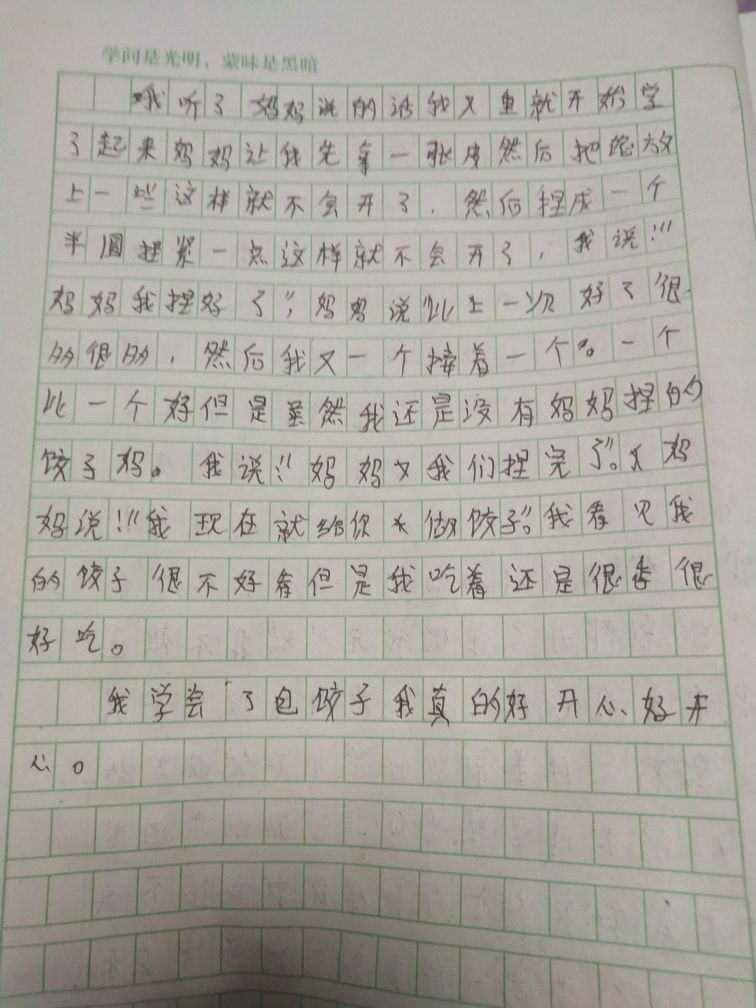 学问是光明，蒙昧是黑暗
我听了妈妈说的话我又重就开始学
了起来妈妈让我先拿一张皮然后把陷放
上一些这样就不会开了，然后捏成一个
半圆捏紧一点这样就不会开了，我说：“
妈妈我捏好了”，妈妈说“比上一次好了很
多很多，然后我又一个接着一个。一个
比一个好但是虽然我还是没有妈妈捏的
饺子妈。我说：“妈妈我们捏完了”。妈
妈说：“我现在就给你做饺子”。我看见我
的饺子很不好看但是我吃着还是很香很
好吃。
我学会了包饺子我真的好开心、好开
心。